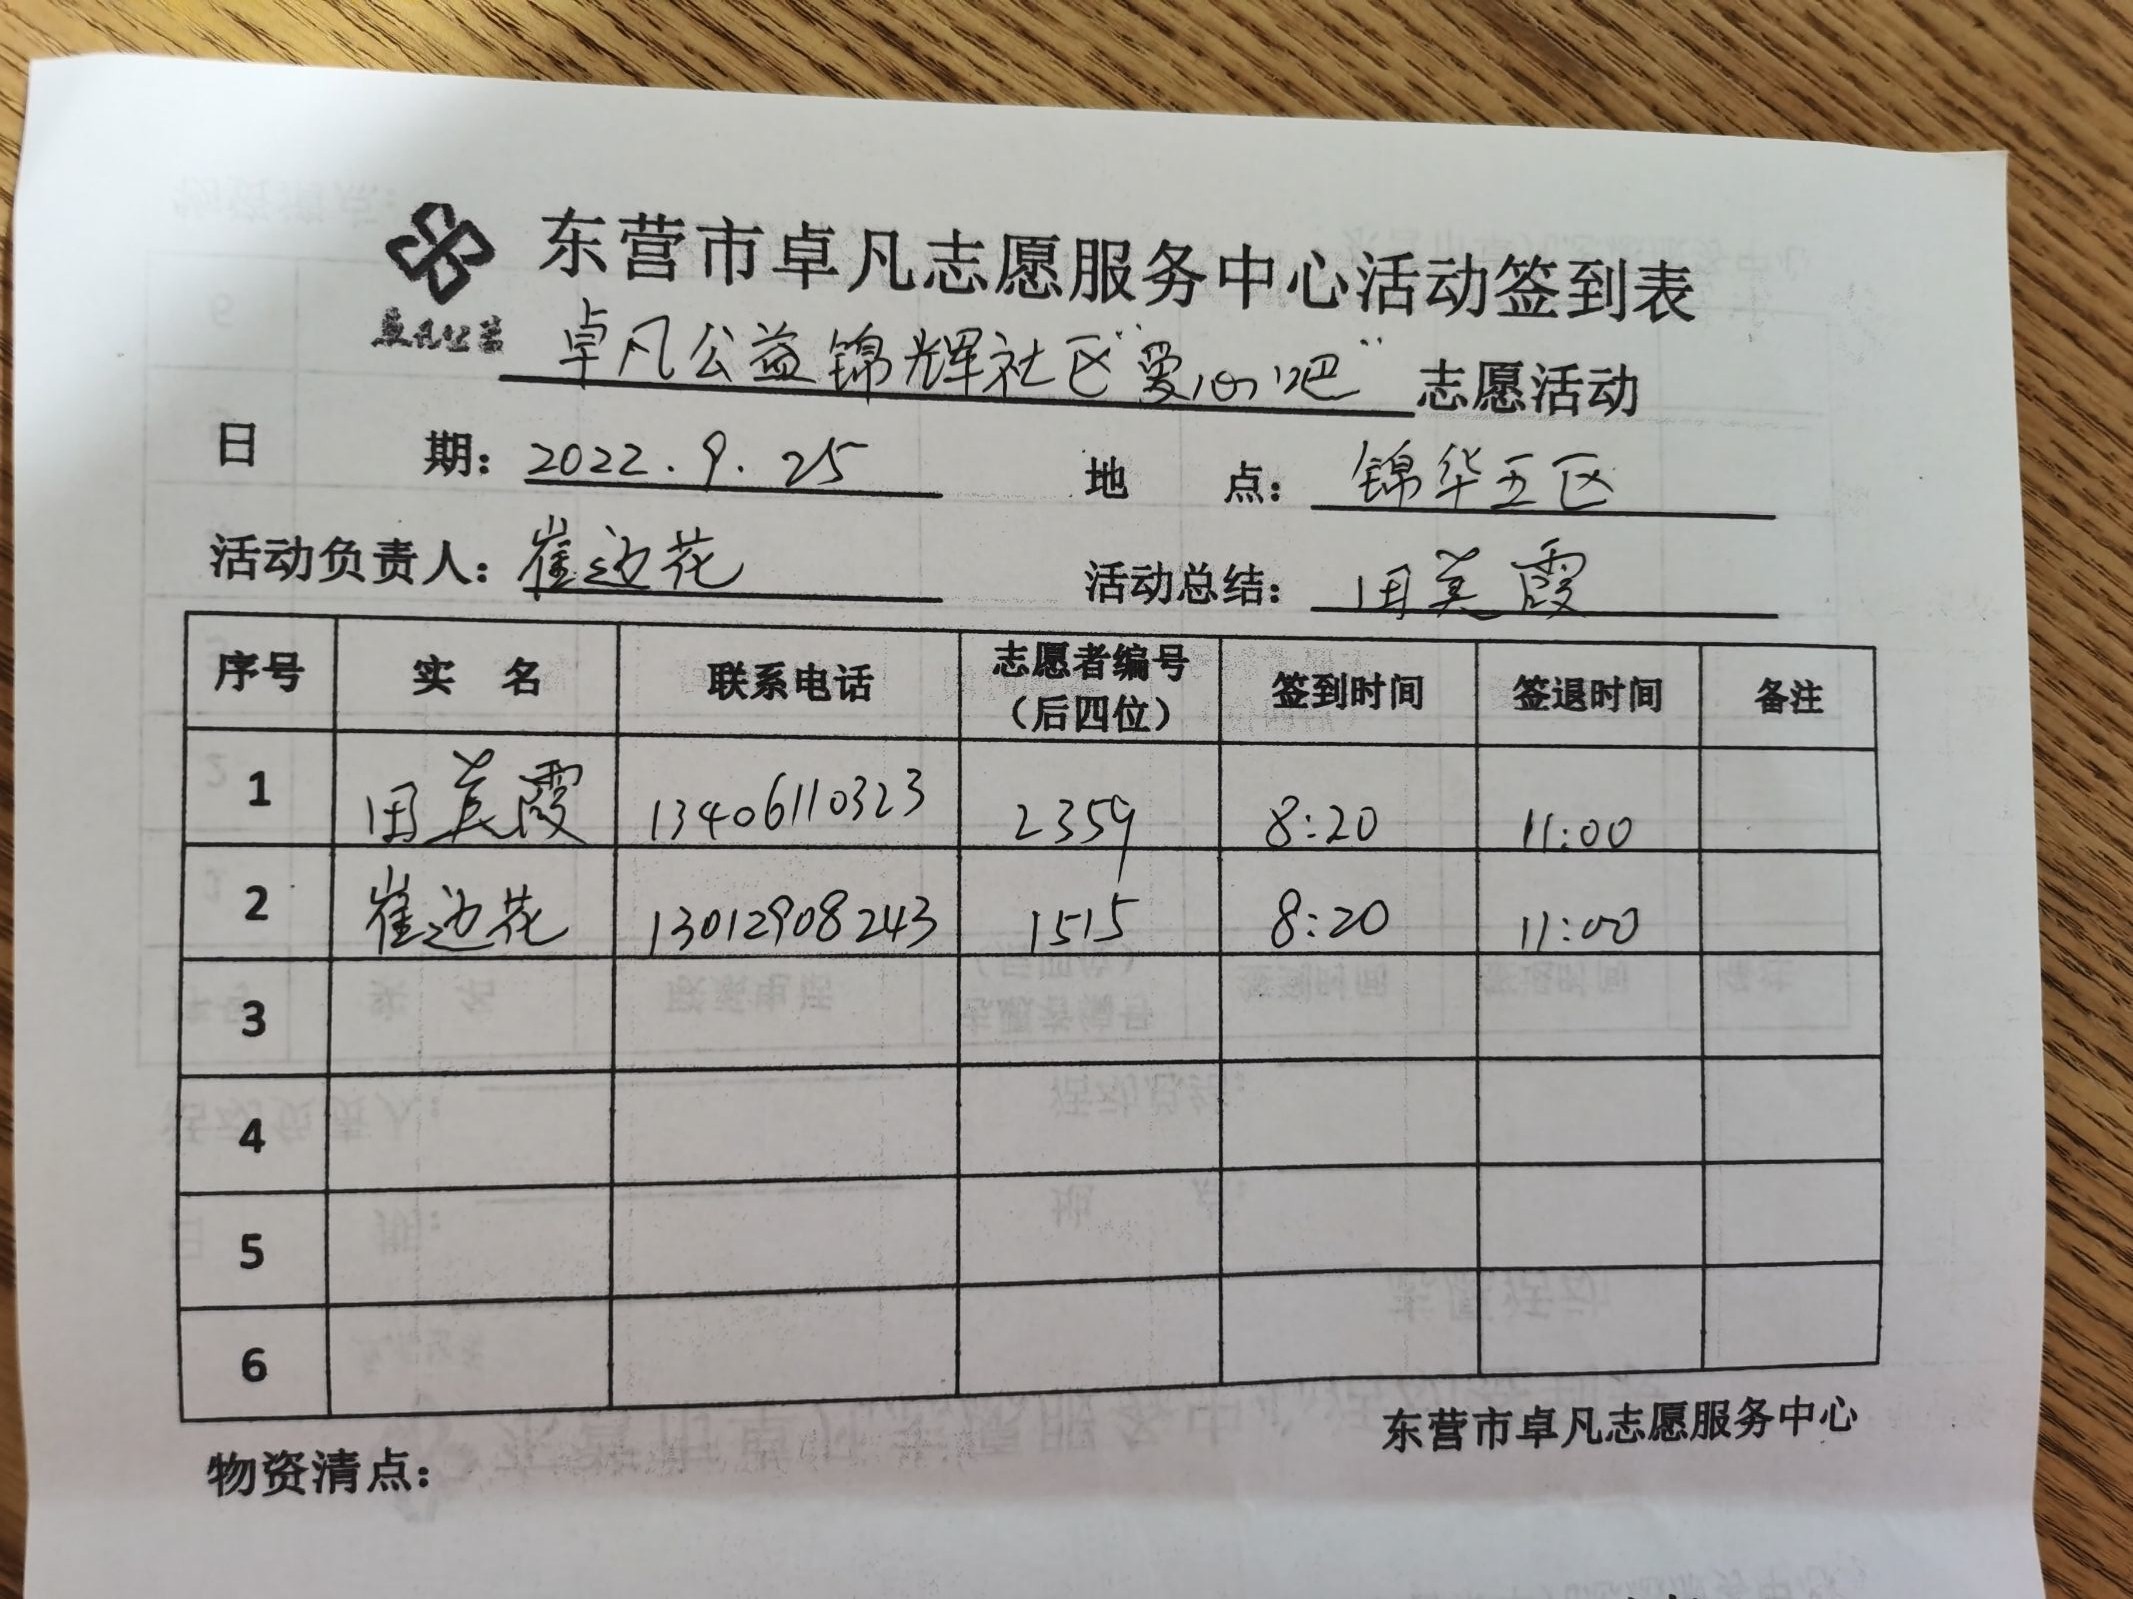 东营市卓凡志愿服务中心活动签到表
卓凡公益
卓凡公益锦辉社区"爱心吧"志愿活动
日 期: 2022.9.25 地 点: 锦华五区
活动负责人: 崔边花 活动总结: 田美霞
序号 实 名 联系电话 志愿者编号（后四位） 签到时间 签退时间 备注
1 田美霞 13406110323 2359 8:20 11:00
2 崔边花 13012908243 1515 8:20 11:00
3
4
5
6
东营市卓凡志愿服务中心
物资清点: